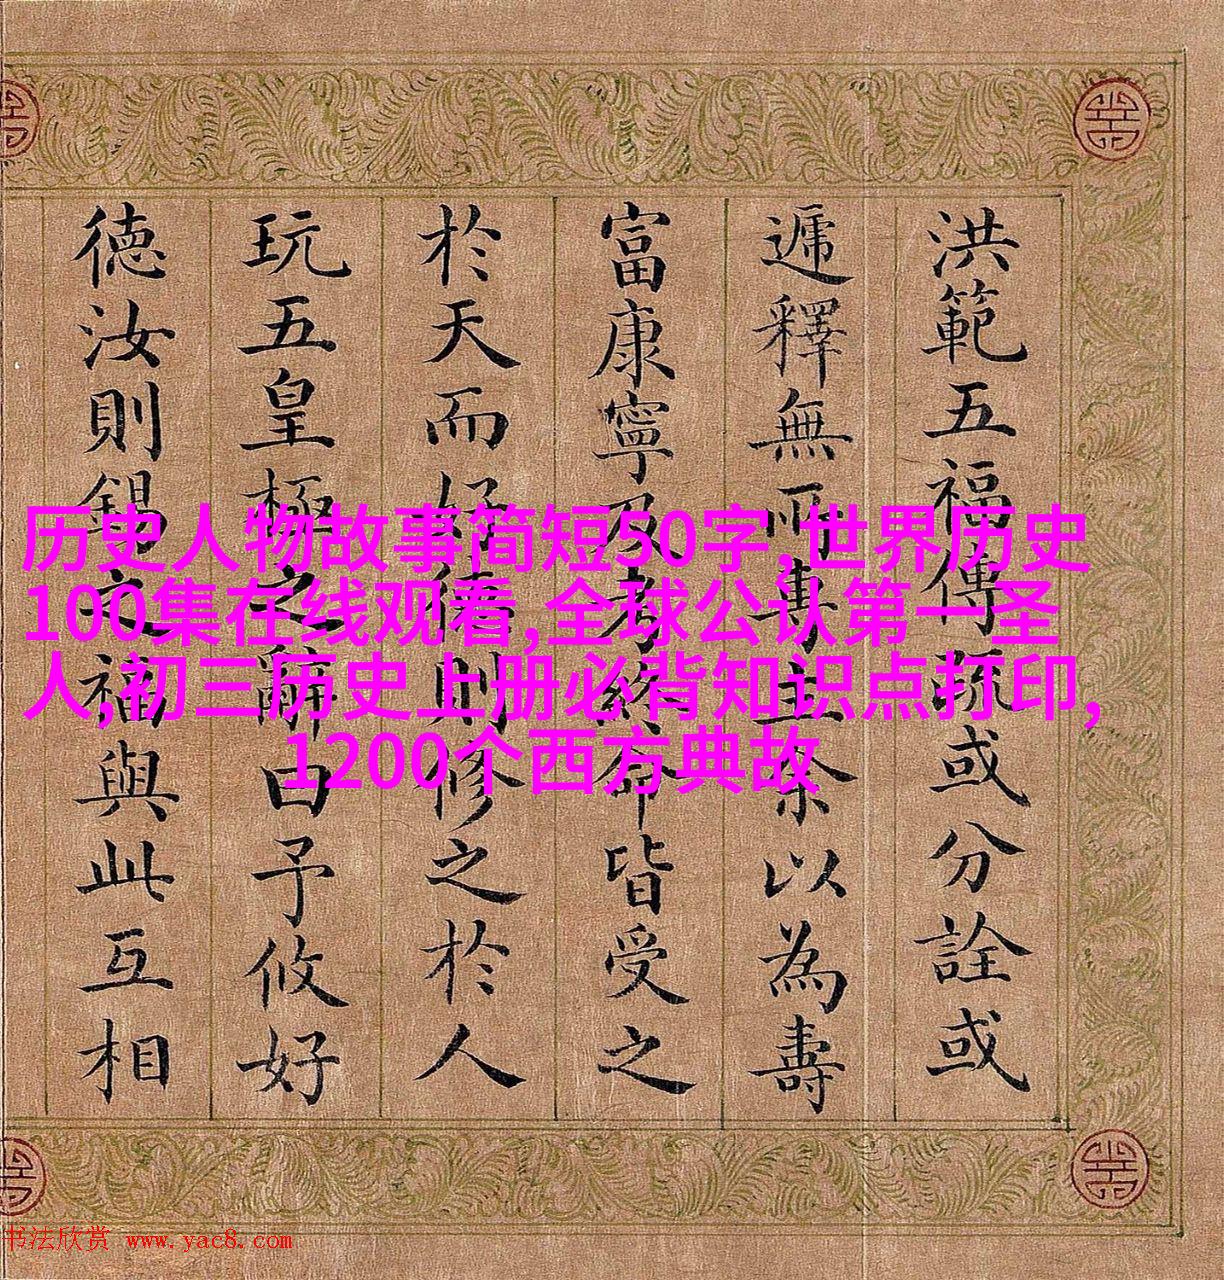 洪範五福傳疏或分詮或
遞釋無所專主余以為壽
富康寧及考終命皆受之
於天而好德則修之於人
玩五皇極之辭曰予攸好
德汝則錫之福與此互相
历史人物故事简短50字,世界历史
100集在线观看,全球公认第一圣
人,初三历史上册必背知识点打印,
1200个西方典故
书法欣赏 www.yac8.com